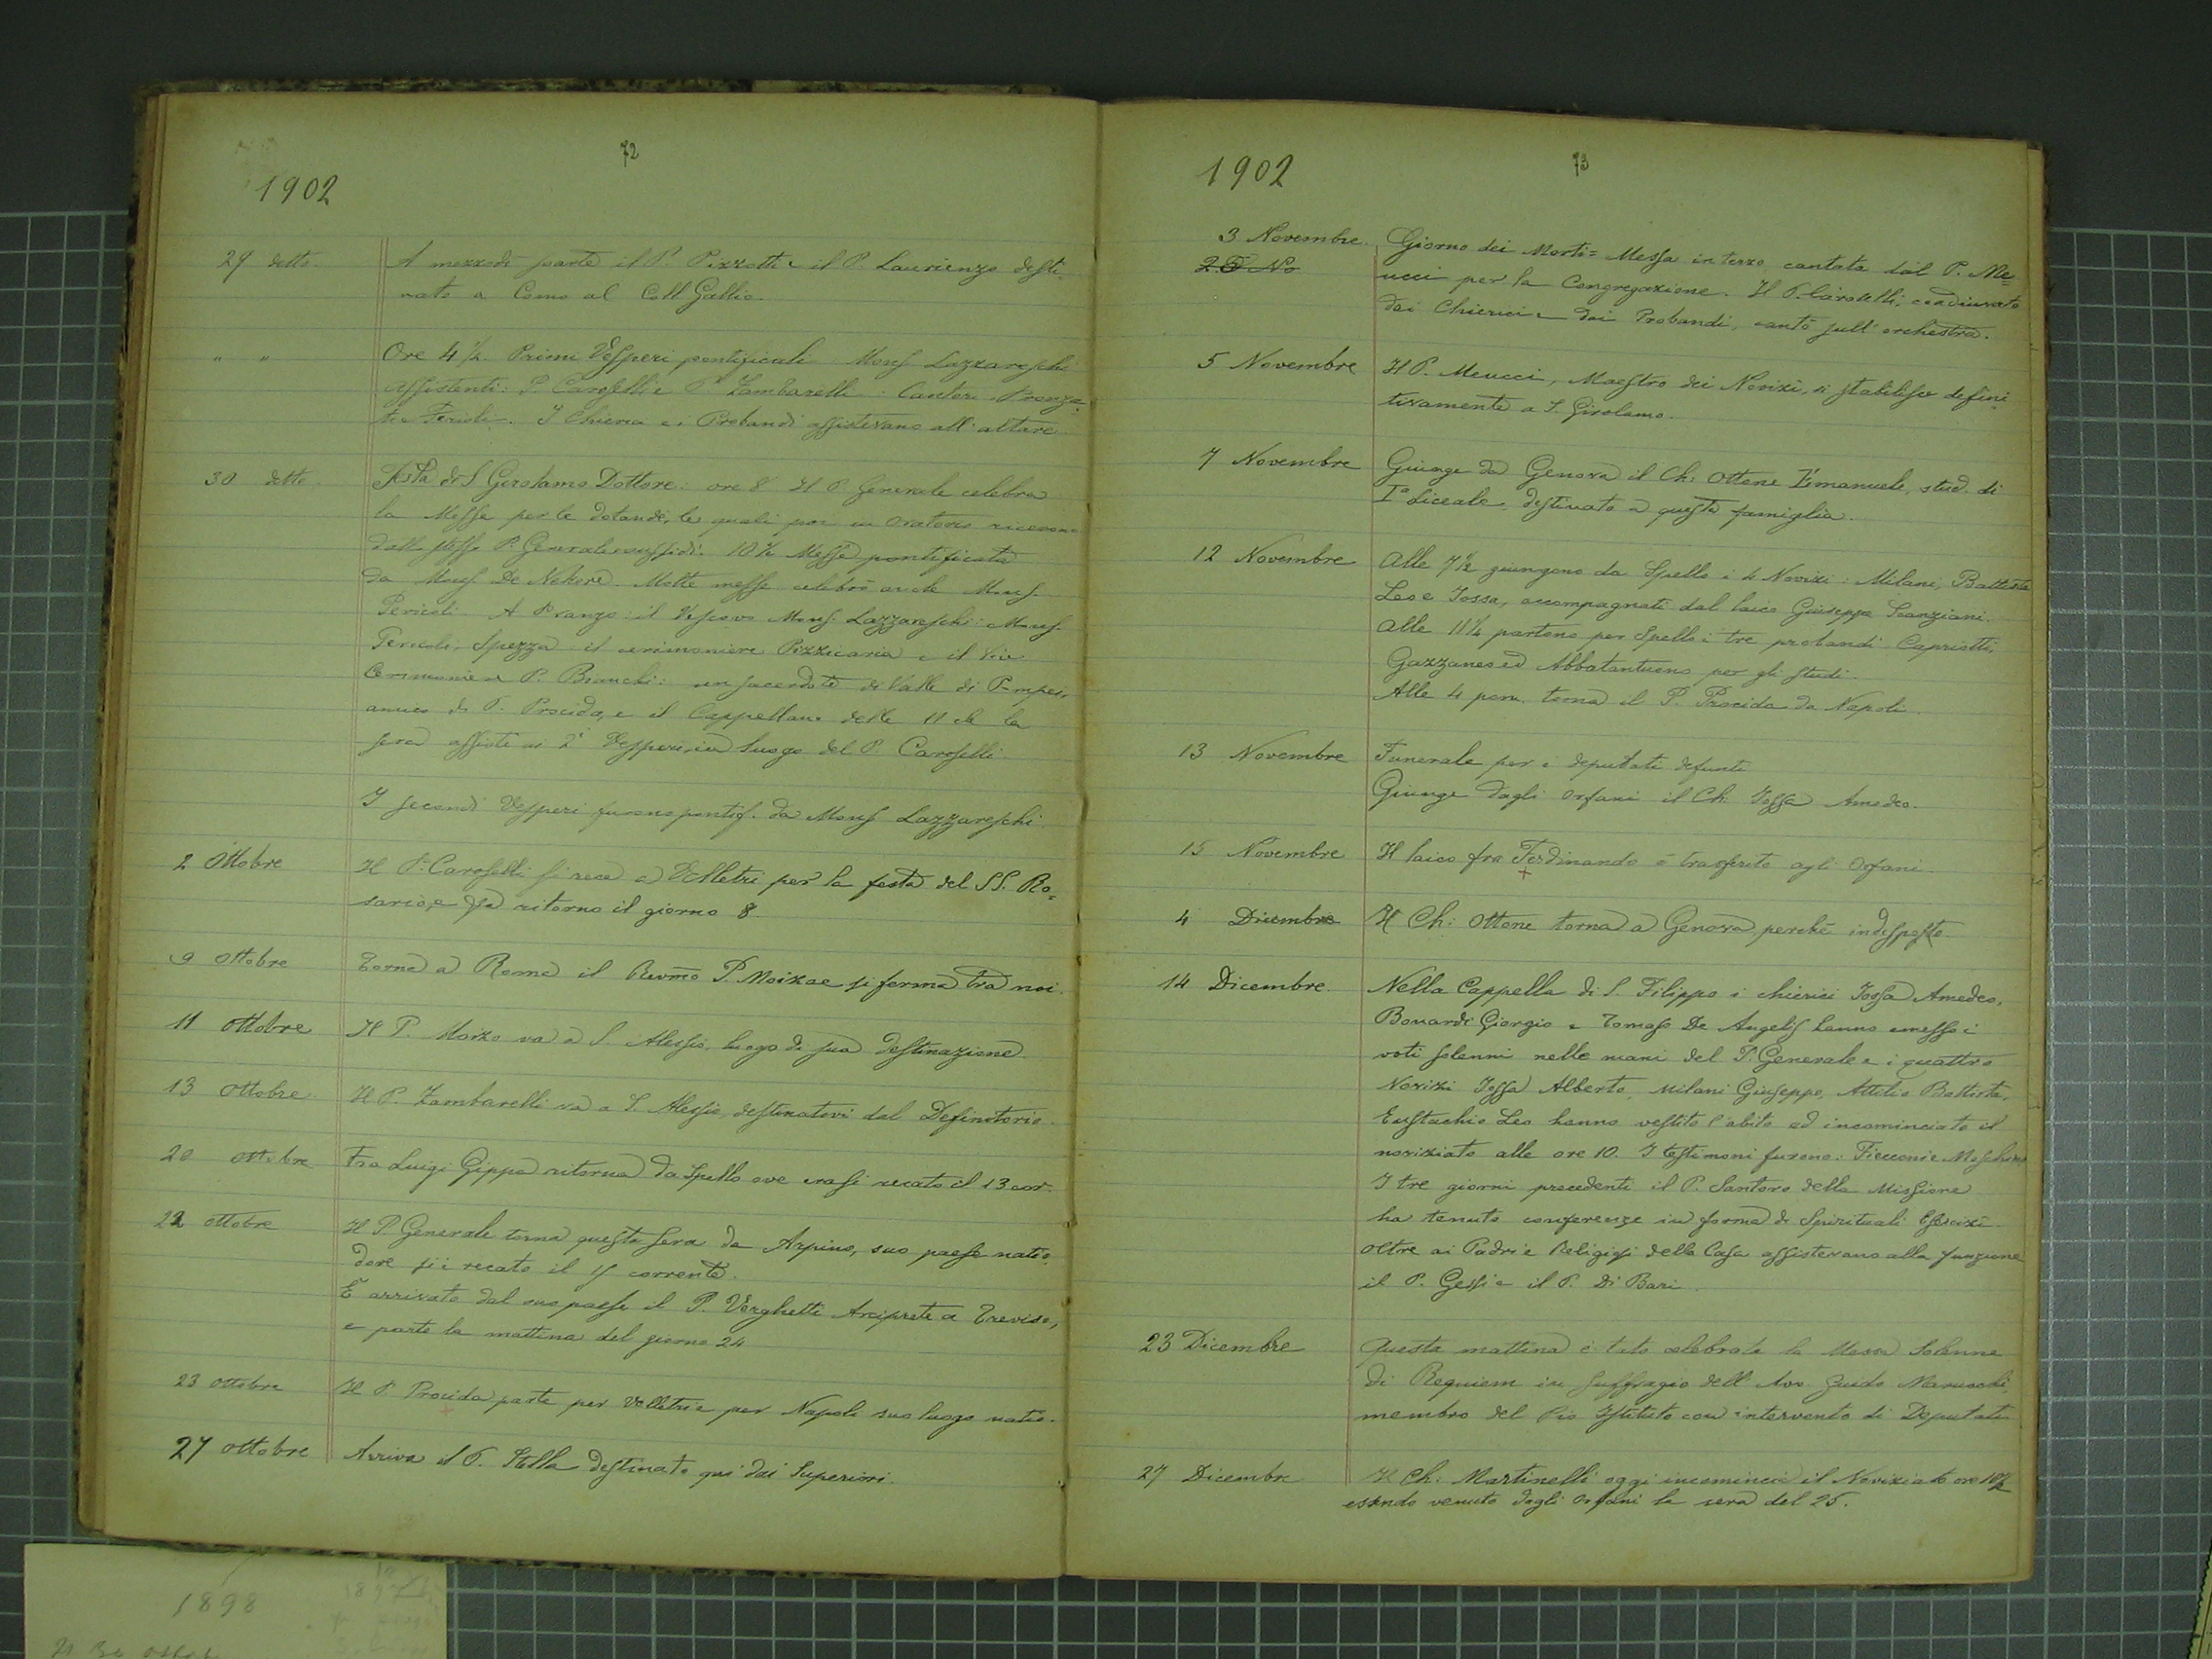 72
1902
29 detto. A mezzodì parte il P. Pizzotti e il P. Laurienzo desti-
nato a Como al Coll Gallio.
" " Ore 4 1/2. Primi Vesperi pontificali Mons Lazzareschi
assistenti: P. Caroselli e P. Zambarelli: Cantori
I Chierici e i Probandi assistevano all'altare
30 detto. Festa di S Girolamo Dottore: ore 8 Il P. Generale celebra
la Messa per le dotande, le quali poi in Oratorio ricevono
dallo stesso P. Generale i sussidi. 10 1/2 Messa pontificata
da Mons De Nekere. Molte messe celebrò anche Mons.
Pericoli A Pranzo: il Vescovo Mons. Lazzareschi: Mons.
Pericoli, Spezza il cerimoniere Pizzicaria e il Vice
Cerimoniere P. Bianchi: un sacerdote di Valle di Pompei,
amico di P. Procida, e il Cappellano delle 11 che la
sera assistè ai 2i Vesperi, in luogo del P. Caroselli.
I secondi Vesperi furono pontif. da Mons Lazzareschi.
2 Ottobre Il P. Caroselli si reca a Velletri per la festa del SS. Ro-
sario, e fa ritorno il giorno 8.
9 Ottobre Torna a Roma il Revmo P. Moizo e si ferma tra noi.
11 Ottobre Il P. Moizo va a S. Alessio, luogo di sua destinazione.
13 Ottobre Il P. Zambarelli va a S. Alessio, destinatovi dal Definitorio.
20 Ottobre Fra Luigi Gippa ritorna da Spello ove erasi recato il 13 cor.
22 Ottobre Il P. Generale torna questa sera da Arpino, suo paese natio,
dove si è recato il 15 corrente.
È arrivato dal suo paese il P. Verghetti Arciprete a Treviso,
e parte la mattina del giorno 24
23 Ottobre Il P. Procida parte per Velletri e per Napoli suo luogo natio.
27 Ottobre Arriva il P. Stella destinato qui dai Superiori.
73
1902
3 Novembre. Giorno dei Morti = Messa in terzo cantata dal P. Me-
2 No ucci per la Congregazione. Il P. Caroselli, coadiuvato
dai Chierici e dai Probandi, cantò sull'orchestra.
5 Novembre Il P. Meucci, Maestro dei Novizi, si stabilisce defini-
tivamente a S. Girolamo.
7 Novembre Giunge da Genova il Ch: Ottone Emanuele, stud. di
Ia Liceale, destinato a questa famiglia.
12 Novembre Alle 7 1/2 giungono da Spello i 4 Novizi: Milani, Battista
Leo e Iossa, accompagnati dal laico Giuseppe Scanziani.
Alle 11 1/4 partono per Spello i tre probandi Capriotti,
Gazzaneo ed Abbatantuono per gli studi.
Alle 4 pom. torna il P. Procida da Napoli.
13 Novembre Funerale per i deputati defunti
Giunge dagli Orfani il Ch. Iossa Amedeo.
15 Novembre Il laico fra Ferdinando è trasferito agli Orfani.
4 Dicembre Il Ch: Ottone torna a Genova, perchè indisposto.
14 Dicembre. Nella Cappella di S. Filippo i chierici Iossa Amedeo,
Bonardi Giorgio e Tomaso De Angelis hanno emesso i
voti solenni nelle mani del P. Generale e i quattro
Novizi Iossa Alberto, Milani Giuseppe, Attilio Battista,
Eustachio Leo hanno vestito l'abito ed incominciato il
noviziato alle ore 10. I testimoni furono:
I tre giorni precedenti il P. Santoro della Missione
ha tenuto conferenze in forma di Spirituali Esercizi
Oltre ai Padri e Religiosi della Casa assistevano alla funzione
il P. Gessi e il P. Di Bari.
23 Dicembre Questa mattina è tata celebrata la Messa Solenne
di Requiem in suffragio dell'Avv. Guido Marucchi,
membro del Pio Istituto con intervento di Deputati
27 Dicembre Il Ch: Martinelli oggi incomincia il Noviziato ore 10 1/2
essendo venuto dagli Orfani la sera del 25.
1898